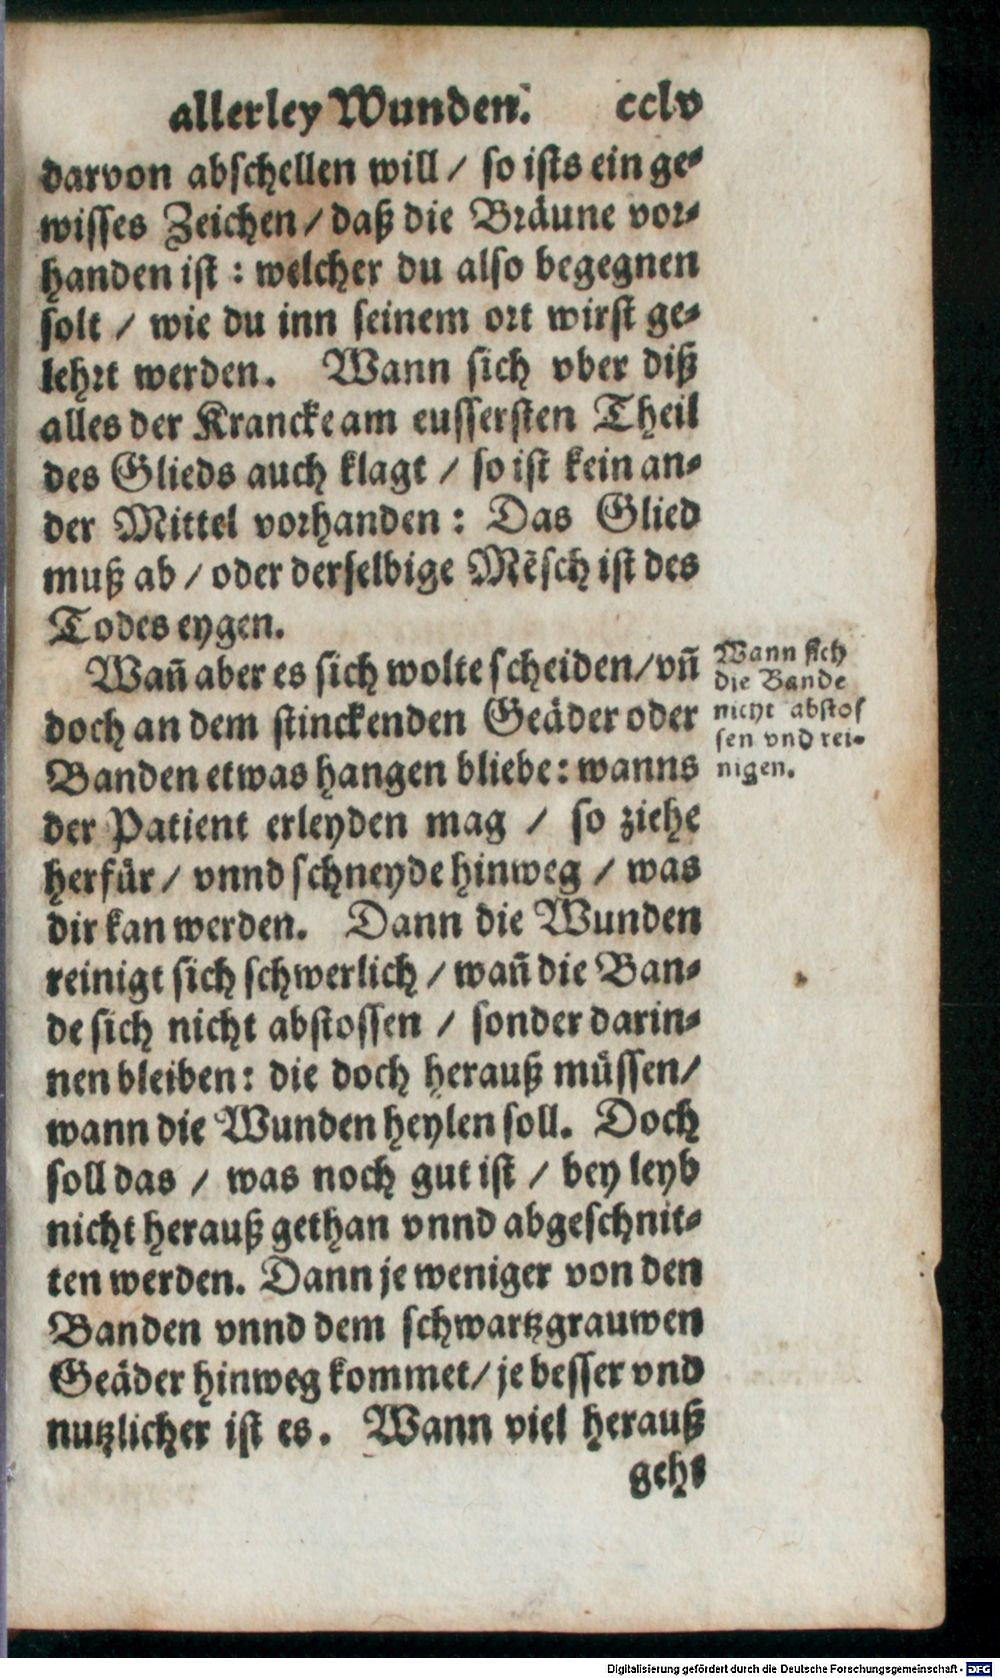 allerley Wunden. cclv
darvon abschellen will / so ists ein ge-
wisses Zeichen / daß die Bräune vor-
handen ist : welcher du also begegnen
solt / wie du inn seinem ort wirst ge-
lehrt werden. Wann sich vber diß
alles der Krancke am eussersten Theil
des Glieds auch klagt / so ist kein an-
der Mittel vorhanden : Das Glied
muß ab / oder derselbige Mẽsch ist des
Todes eygen.
Wañ aber es sich wolte scheiden / vñ
doch an dem stinckenden Geäder oder
Banden etwas hangen bliebe: wanns
der Patient erleyden mag / so ziehe
herfür / vnnd schneyde hinweg / was
dir kan werden. Dann die Wunden
reinigt sich schwerlich / wañ die Ban-
de sich nicht abstossen / sonder darin-
nen bleiben: die doch herauß müssen /
wann die Wunden heylen soll. Doch
soll das / was noch gut ist / bey leyb
nicht herauß gethan vnnd abgeschnit-
ten werden. Dann je weniger von den
Banden vnnd dem schwartzgrauwen
Geäder hinweg kommet / je besser vnd
nutzlicher ist es. Wann viel herauß
geht
Wann sich
die Bande
nicht abstos
sen vnd rei-
nigen.
Digitalisierung gefördert durch die Deutsche Forschungsgemeinschaft - DFG